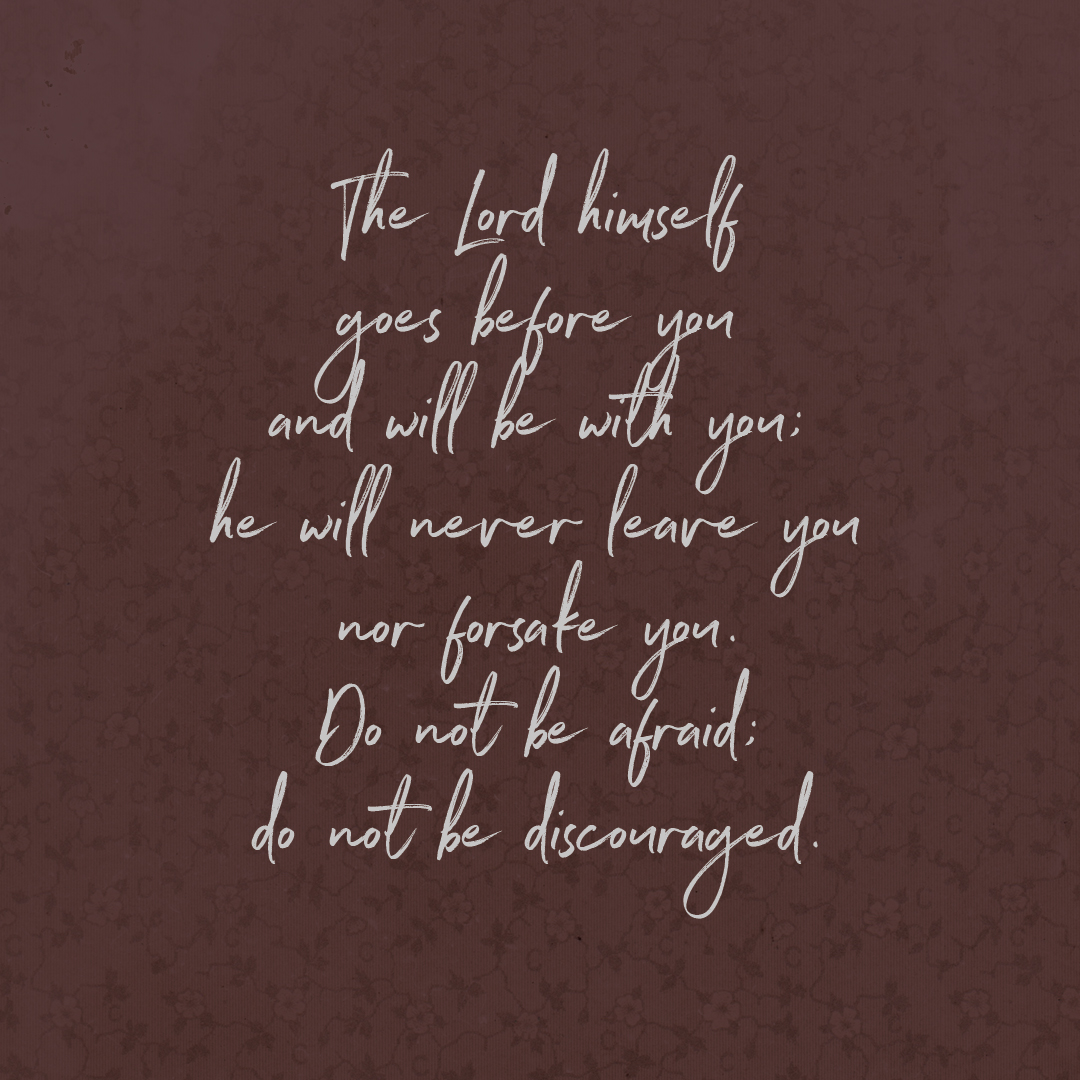 The Lord himself
goes before you
and will be with you;
he will never leave you
nor forsake you.
Do not be afraid;
do not be discouraged.